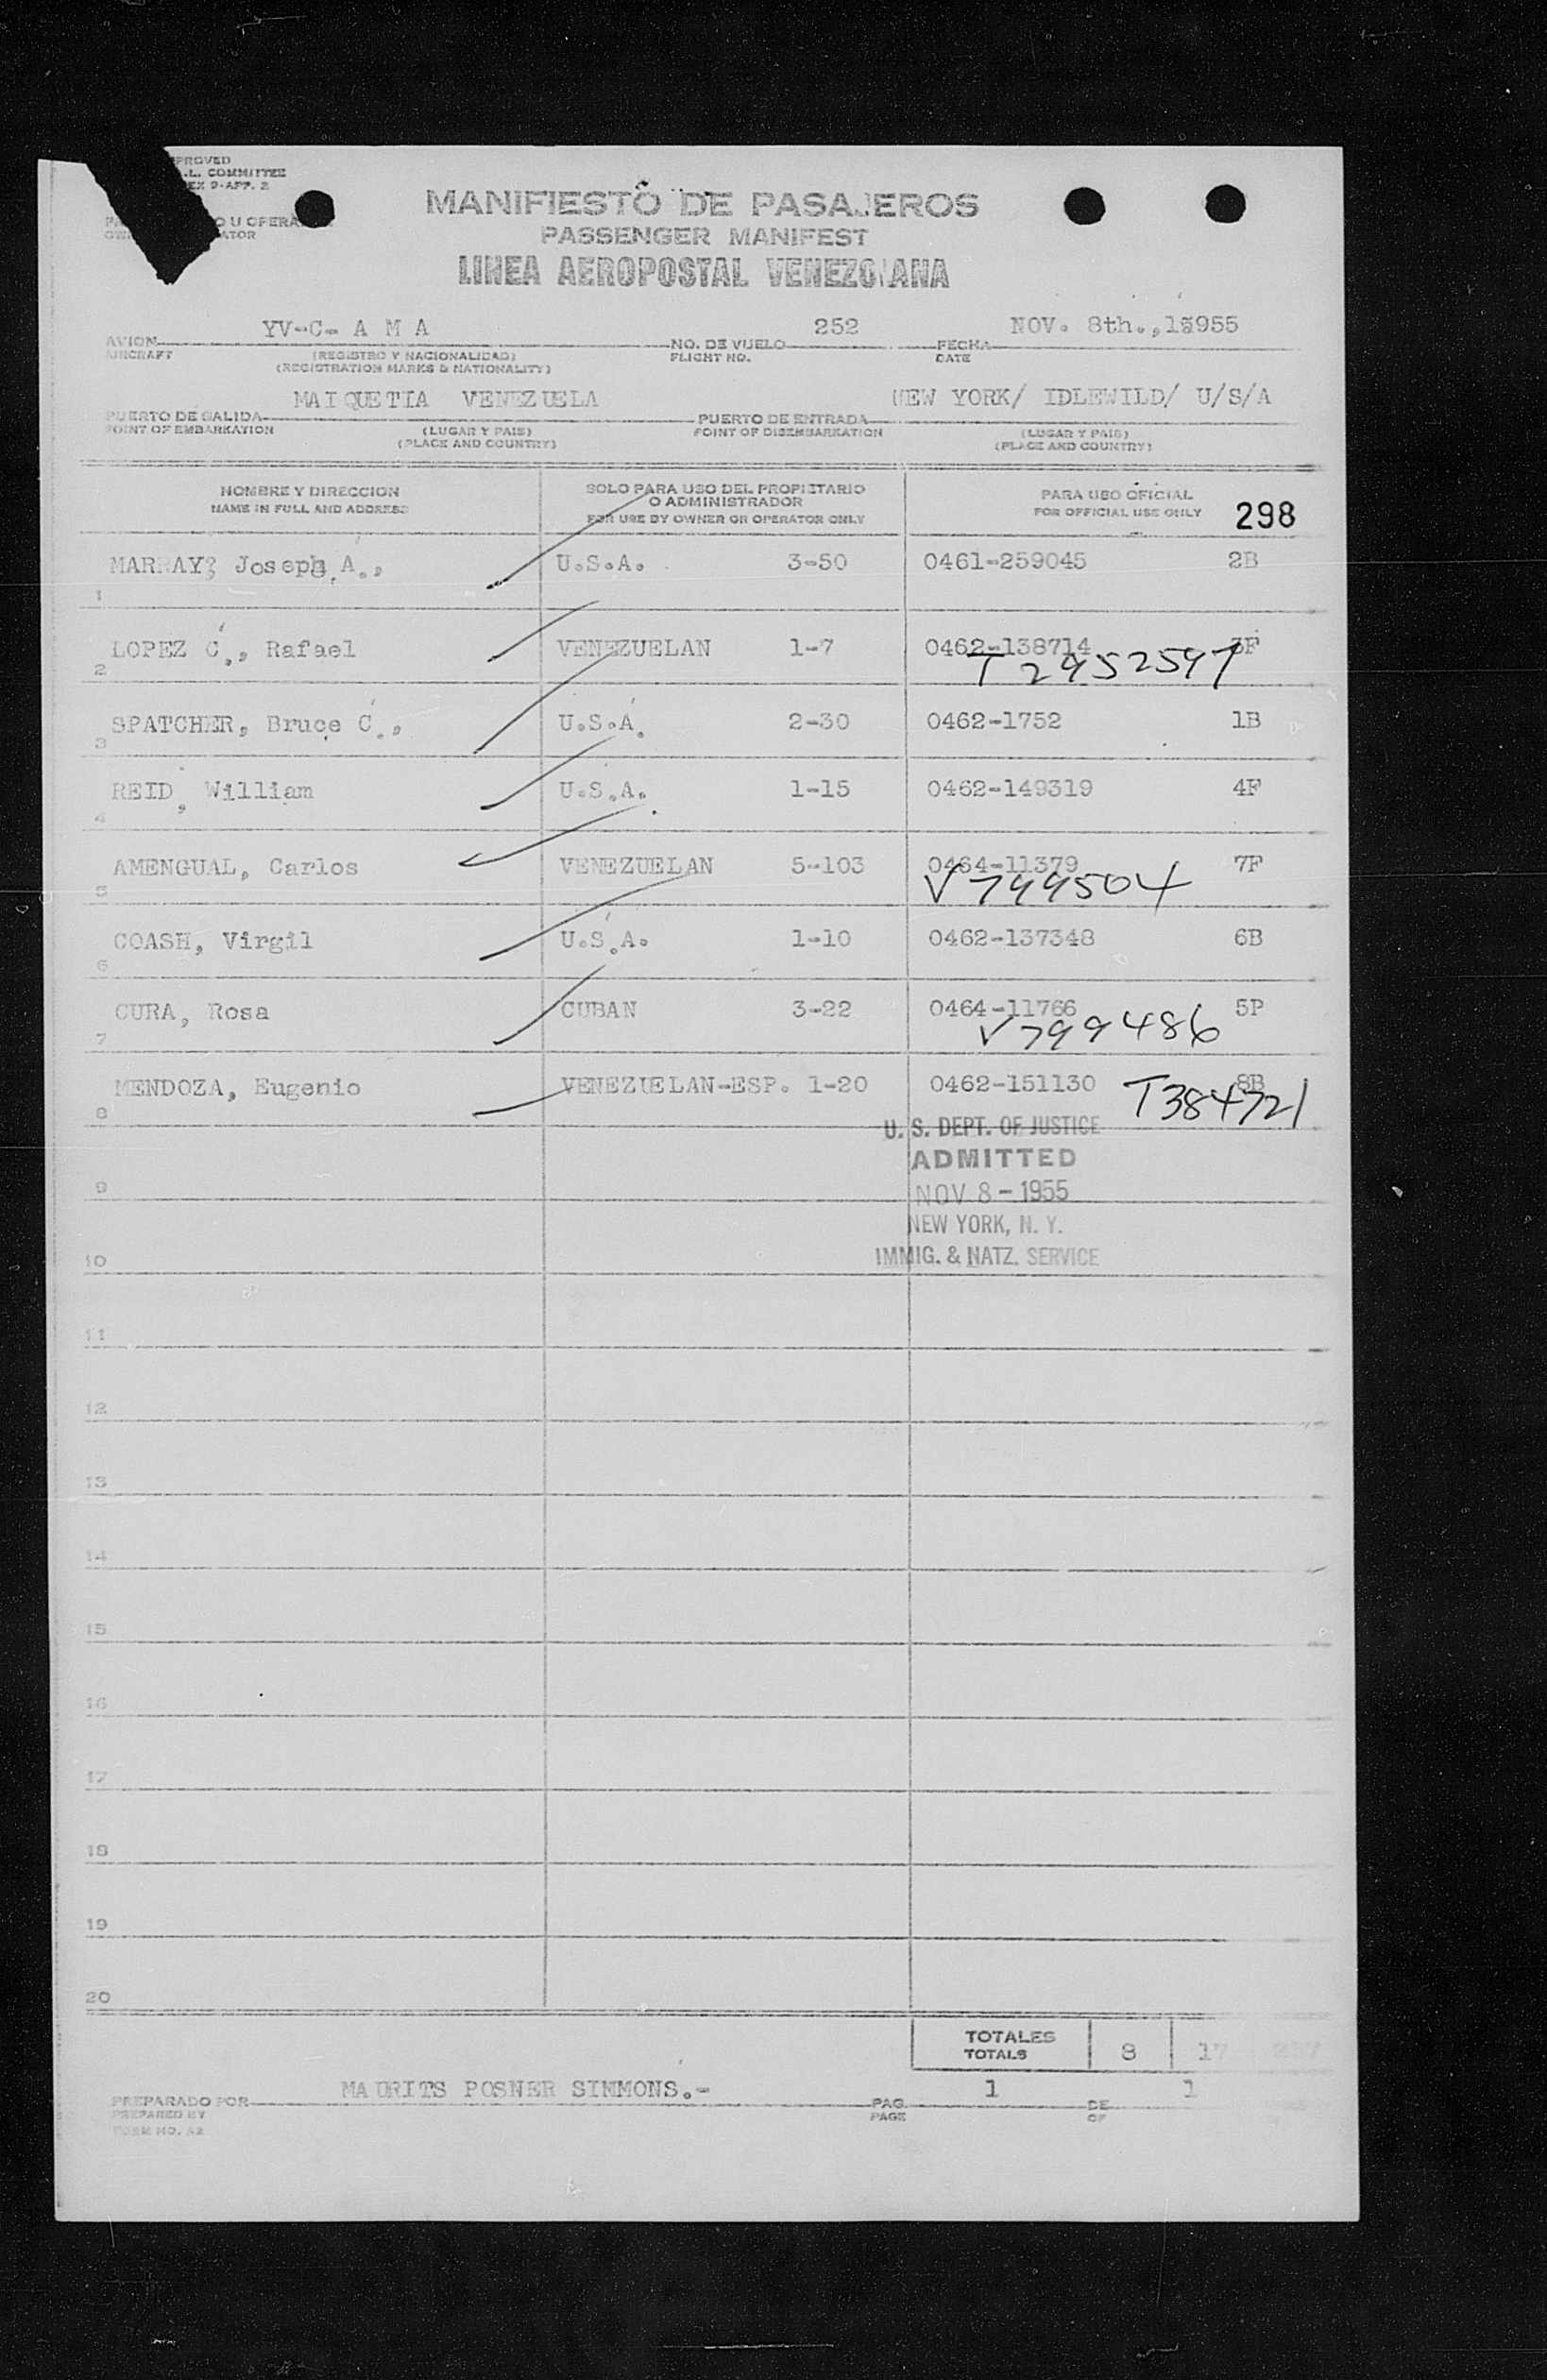 PROVED
.L. COMMITTEE
EX 9-APP. 2
O U OPERA
ATOR
MANIFIESTO DE PASAJEROS
PASSENGER MANIFEST
LINEA AEROPOSTAL VENEZOLANA
YV-C- A M A 252 NOV. 8th.,1955
AVION NO. DE VUELO FECHA
AIRCRAFT (REGISTRO Y NACIONALIDAD) FLIGHT NO. DATE
(REGISTRATION MARKS & NATIONALITY)
MAIQUETIA VENEZUELA NEW YORK/ IDLEWILD/ U/S/A
PUERTO DE SALIDA PUERTO DE ENTRADA
POINT OF EMBARKATION (LUGAR Y PAIS) POINT OF DISEMBARKATION (LUGAR Y PAIS)
(PLACE AND COUNTRY) (PLACE AND COUNTRY)
NOMBRE Y DIRECCION SOLO PARA USO DEL PROPIETARIO PARA USO OFICIAL
NAME IN FULL AND ADDRESS O ADMINISTRADOR FOR OFFICIAL USE ONLY 298
FOR USE BY OWNER OR OPERATOR ONLY
MARRAY, Joseph A., U.S.A. 3-50 0461-259045 2B
1
LOPEZ C., Rafael VENEZUELAN 1-7 0462-138714 3F
2 T 2952597
SPATCHER, Bruce C., U.S.A. 2-30 0462-1752 1B
3
REID, William U.S.A. 1-15 0462-149319 4F
4
AMENGUAL, Carlos VENEZUELAN 5-103 0464-11379 7F
5 V 799504
COASH, Virgil U.S.A. 1-10 0462-137348 6B
6
CURA, Rosa CUBAN 3-22 0464-11766 5P
7 V 799486
MENDOZA, Eugenio VENEZUELAN-ESP. 1-20 0462-151130 8B
8 T384721
U. S. DEPT. OF JUSTICE
ADMITTED
9 NOV 8 - 1955
NEW YORK, N. Y.
10 IMMIG. & NATZ. SERVICE
11
12
13
14
15
16
17
18
19
20
TOTALES
TOTALS 8 17
MAURITS POSNER SIMMONS.- 1 1
PREPARADO POR PAG. DE
PREPARED BY PAGE OF
FORM NO. A2